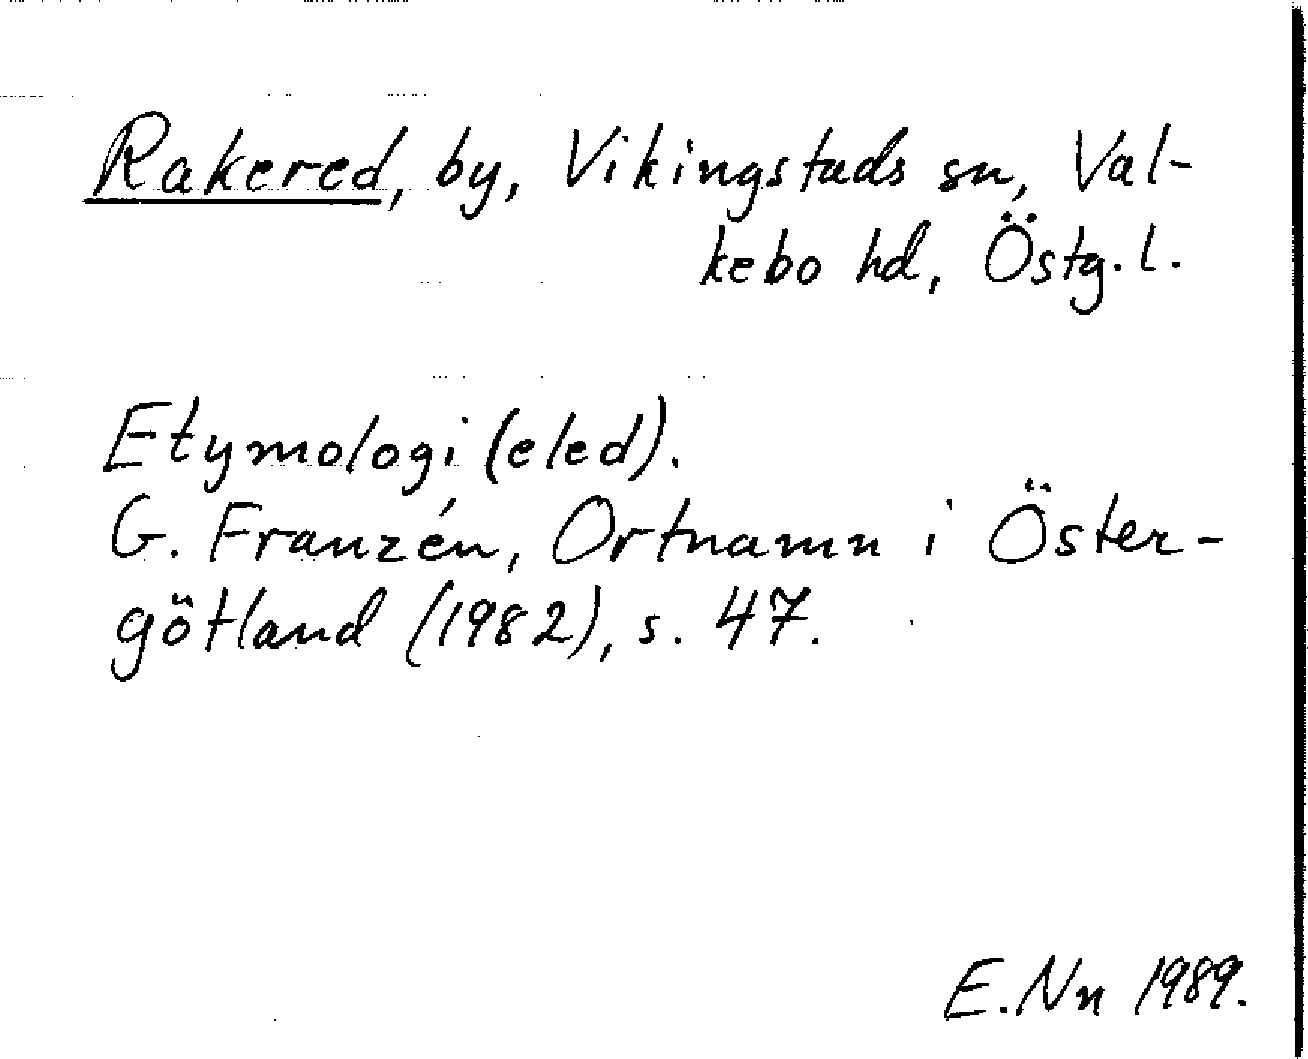 Rakered, by, Vikingstads sn, Val-
kebo hd, Östg.l.
Etymologi (eled).
G. Franzén, Ortnamn i Öster-
götland (1982), s. 47.
E.Nn 1989.